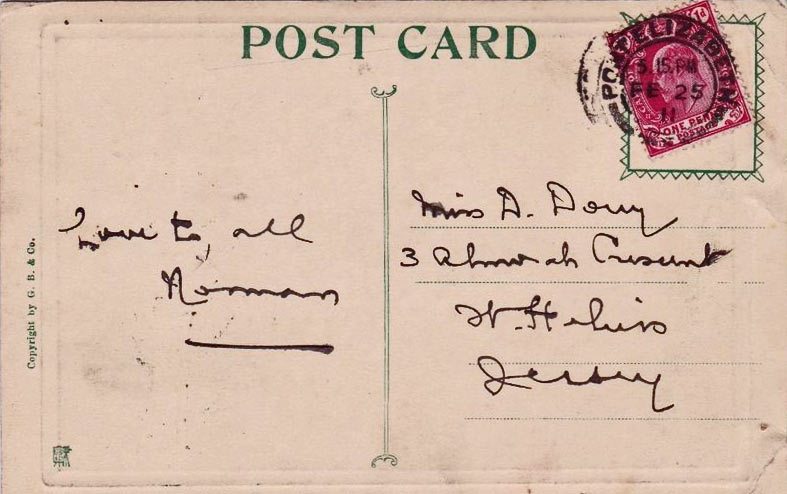 POST CARD
PORT ELIZABETH
5.15 PM
FE 25
11
ONE PENNY
Miss D. Dony
Love to, all
3 Almorah Crescent
Norman
St. Heliers
Jersey
Copyright by G. B. & Co.